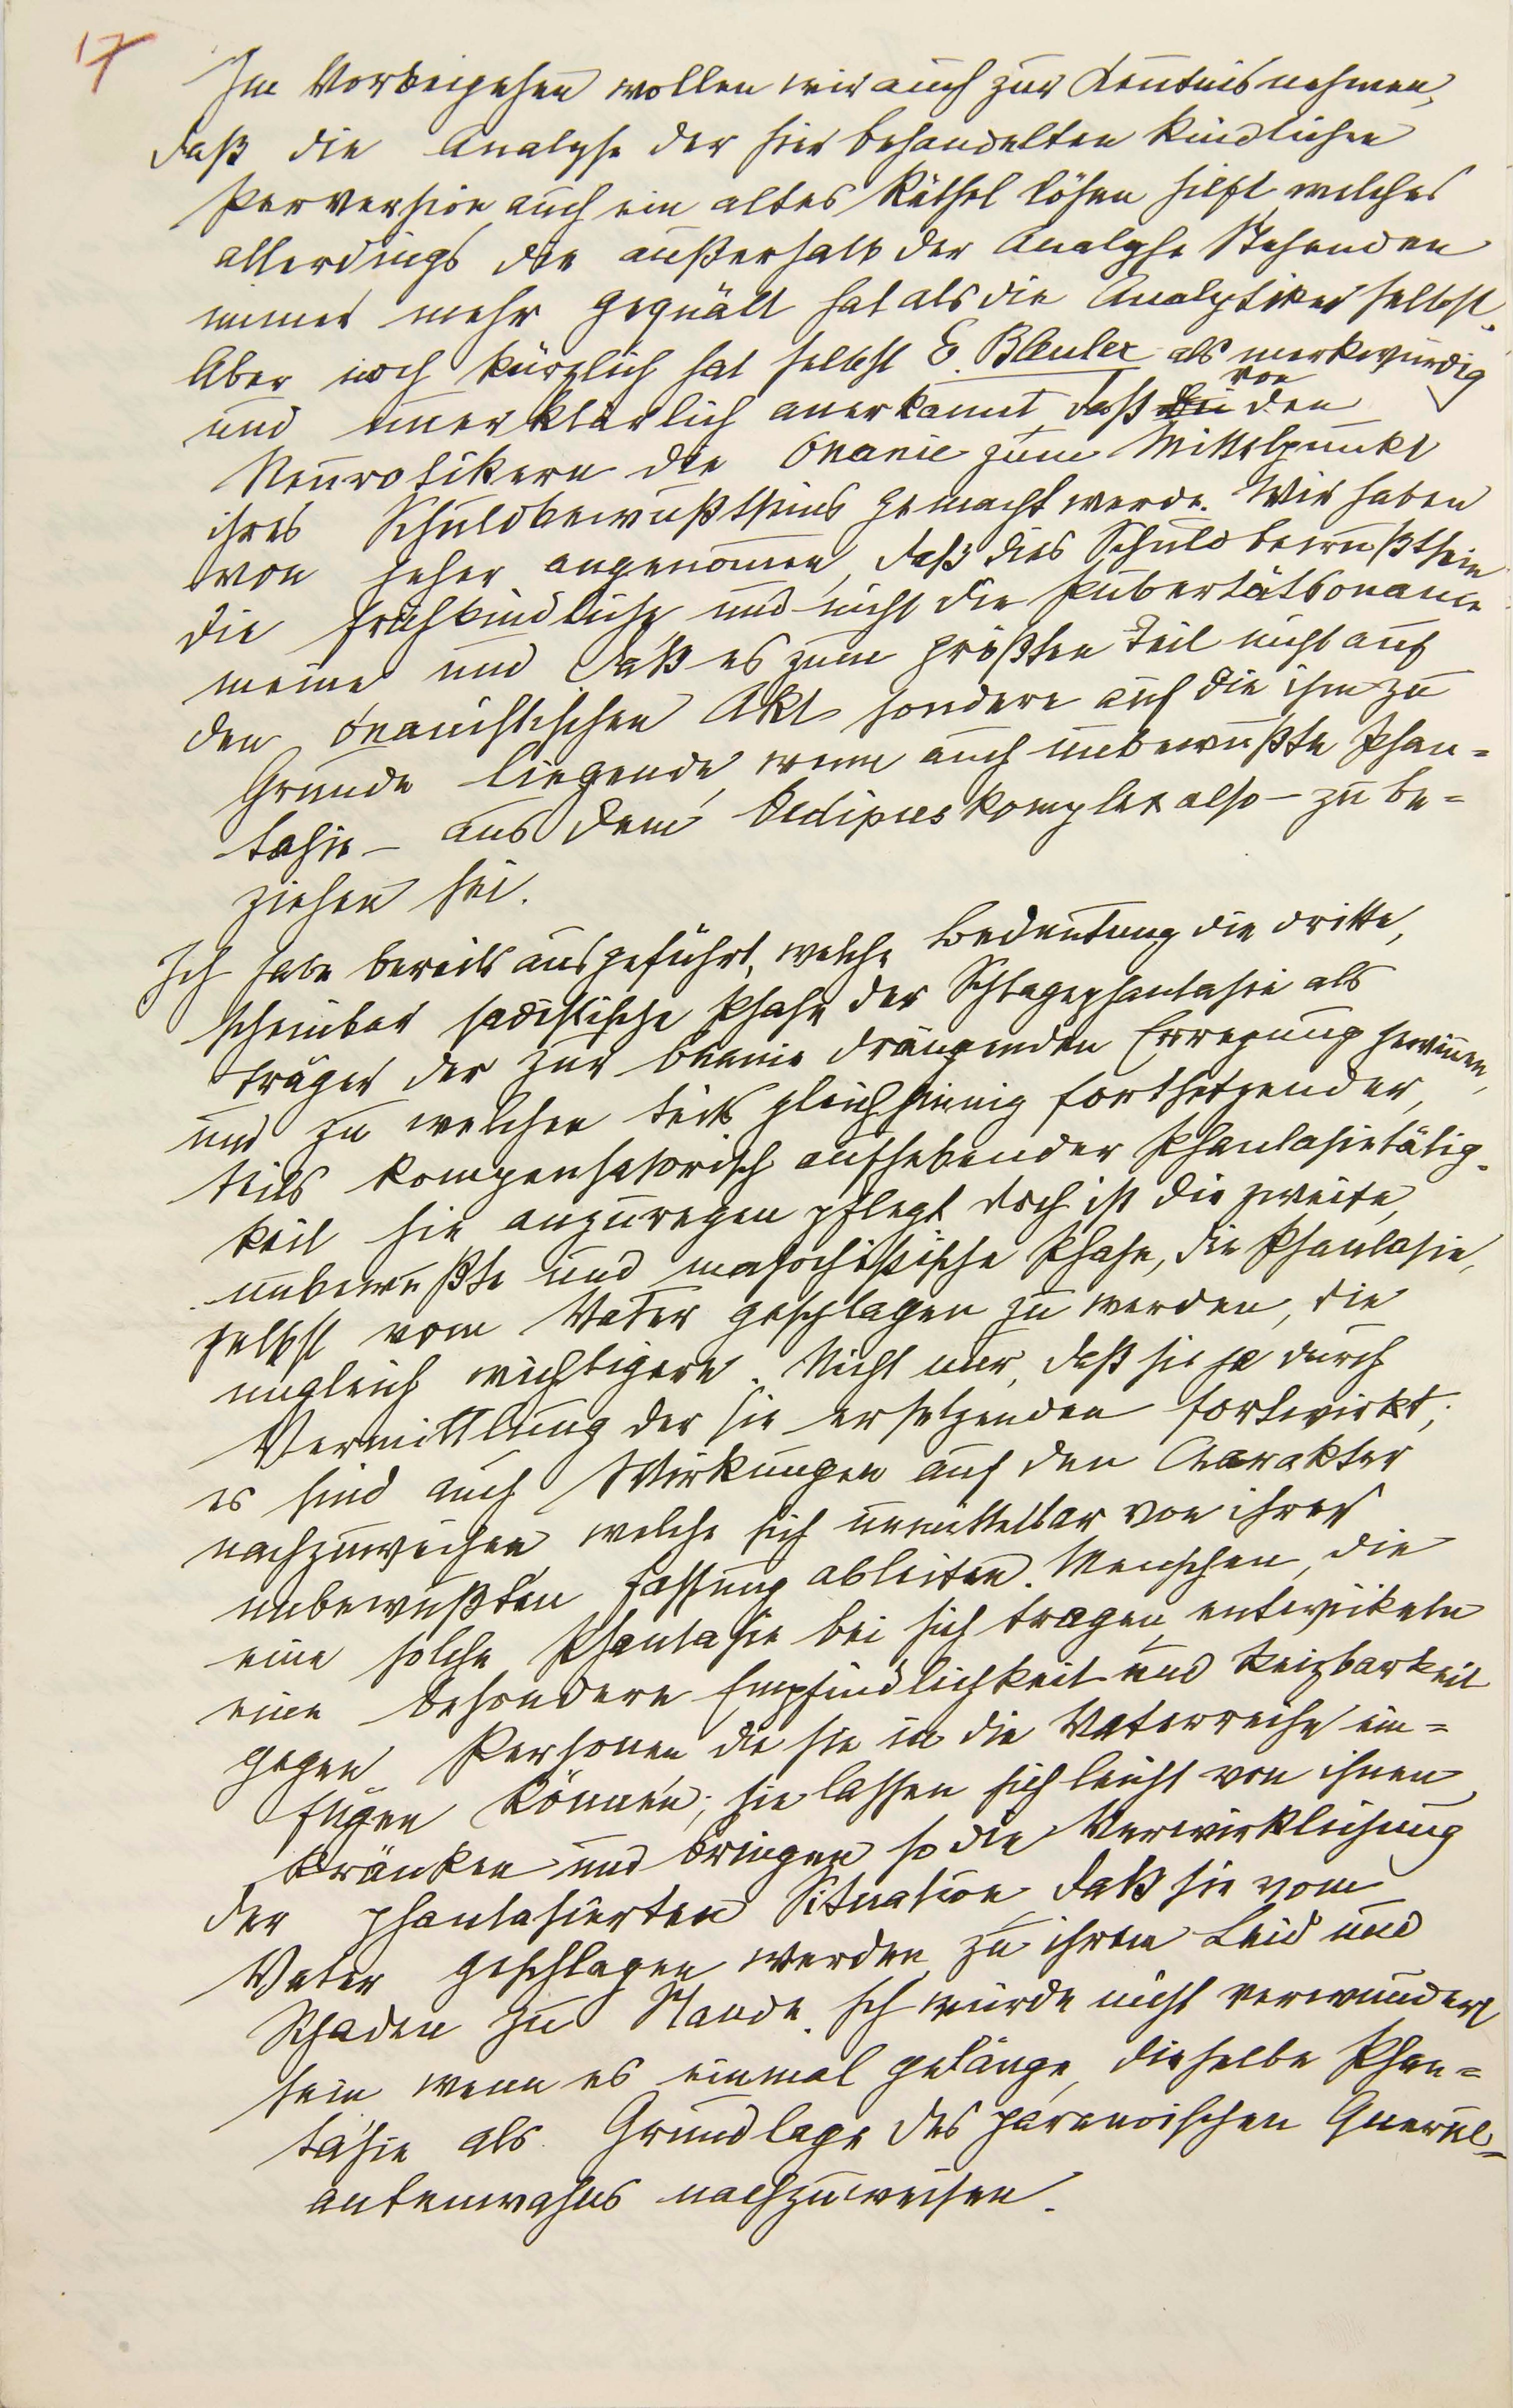 17
Im Vorbeigehen wollen wir auch zur Kenntnis nehmen,
daß die Analyse der hier behandelten kindlichen
Perversion auch ein altes Räthsel lösen hilft, welches
allerdings die außerhalb der Analyse Stehenden
immer mehr gequält hat als die Analytiker selbst.
Aber noch kürzlich hat selbst E. Bleuler als merkwürdig
und unerklärlich anerkannt, daß von den
Neurotikern die Onanie zum Mittelpunkt
ihres Schuldbewußtseins gemacht werde. Wir haben
von jeher angenommen, daß dies Schuldbewußtsein
die frühkindliche und nicht die Pubertätsonanie
meine und daß es zum größten Teil nicht auf
den onanistischen Akt sondern auf die ihm zu
Grunde liegende, wenn auch unbewußte Phan=
tasie – aus dem Oedipuskomplex also – zu be=
ziehen sei.
Ich habe bereits ausgeführt, welche Bedeutung die dritte,
scheinbar sadistische Phase der Schlagephantasie als
Träger der zur Onanie drängenden Erregung gewinnen,
und zu welcher teils gleichsinnig fortsetzender,
teils kompensatorisch aufhebender Phantasietätig-
keit sie anzuregen pflegt doch ist die zweite,
unbewußte und masochistische Phase, die Phantasie,
selbst vom Vater geschlagen zu werden, die
ungleich wichtigere. Nicht nur, daß sie ja durch
Vermittlung der sie ersetzenden fortwirkt;
es sind auch Wirkungen auf den Charakter
nachzuweisen welche sich unmittelbar von ihrer
unbewußten Fassung ableiten. Menschen, die
eine solche Phantasie bei sich tragen, entwickeln
eine besondere Empfindlichkeit und Reizbarkeit
gegen Personen, die sie in die Vaterreihe ein=
fügen können; sie lassen sich leicht von ihnen
kränken und bringen so die Verwirklichung
der phantasierten Situation, daß sie vom
Vater geschlagen werden, zu ihrem Leid und
Schaden zu Stande. Ich würde nicht verwundert
sein wenn es einmal gelänge, dieselbe Phan=
tasie als Grundlage des paranoischen Querul=
antenwahns nachzuweisen.